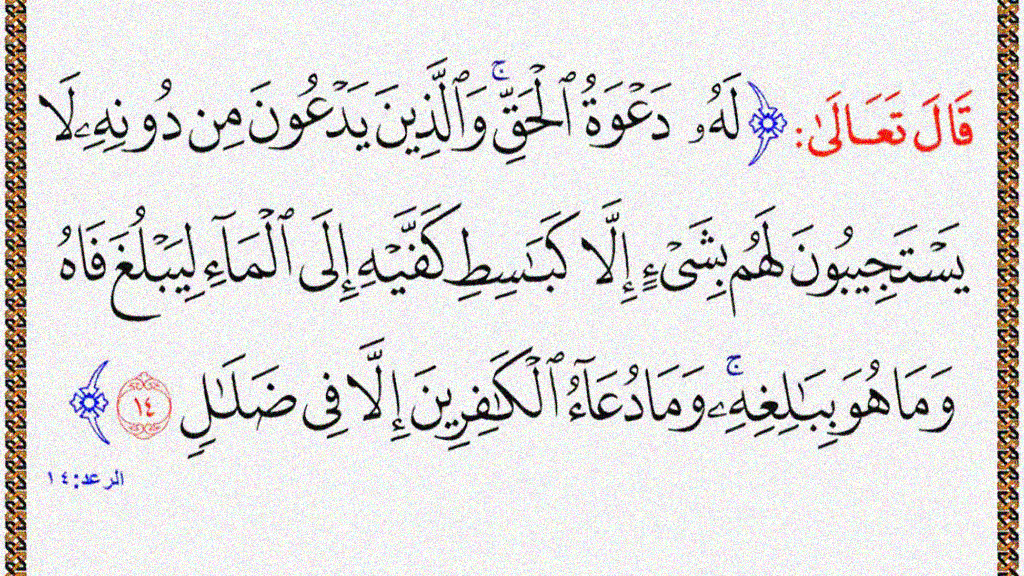 قَالَ تَعَالَىٰ: ﴿لَهُۥ دَعْوَةُ ٱلْحَقِّ ۚ وَٱلَّذِينَ يَدْعُونَ مِن دُونِهِۦ لَا
يَسْتَجِيبُونَ لَهُم بِشَىْءٍ إِلَّا كَبَـٰسِطِ كَفَّيْهِ إِلَى ٱلْمَآءِ لِيَبْلُغَ فَاهُ
وَمَا هُوَ بِبَـٰلِغِهِۦ ۚ وَمَا دُعَآءُ ٱلْكَـٰفِرِينَ إِلَّا فِى ضَلَـٰلٍ ١٤﴾
الرعد:١٤